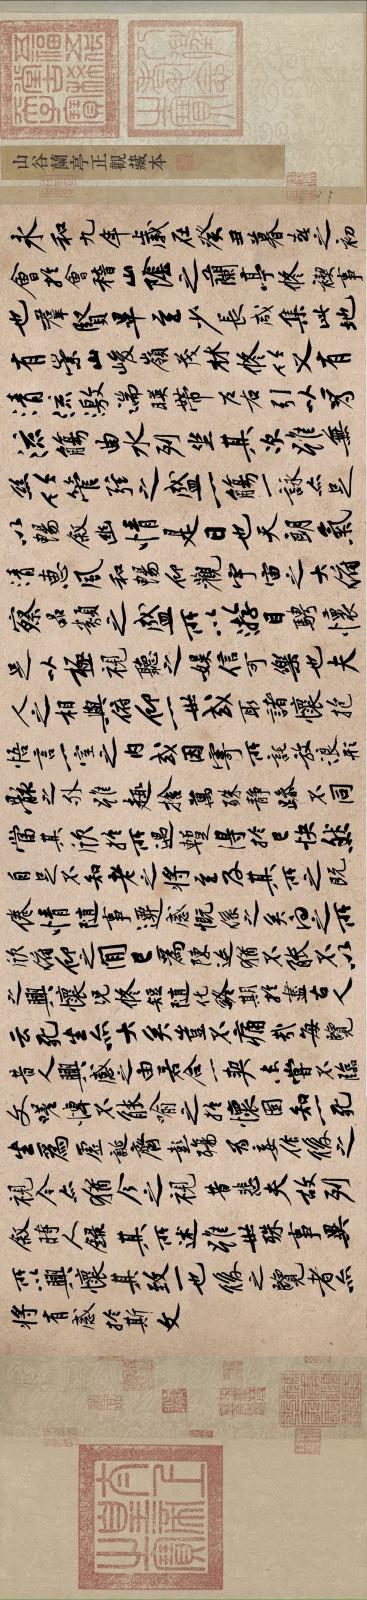 山谷蘭亭正觀藏本
永和九年歲在癸丑暮春之初
會於會稽山陰之蘭亭修禊事
也羣賢畢至少長咸集此地
有崇山峻嶺茂林修竹又有
清流激湍暎帶左右引以為
流觴曲水列坐其次雖無
絲竹管弦之盛一觴一詠亦足
以暢敘幽情是日也天朗氣
清惠風和暢仰觀宇宙之大俯
察品類之盛所以遊目騁懷
足以極視聽之娛信可樂也夫
人之相與俯仰一世或取諸懷抱
悟言一室之內或因寄所託放浪形
骸之外雖趣捨萬殊靜躁不同
當其欣於所遇暫得於己快然
自足不知老之將至及其所之既
倦情隨事遷感慨係之矣向之所
欣俯仰之間已為陳迹猶不能不以
之興懷況修短隨化終期於盡古人
云死生亦大矣豈不痛哉每覽
昔人興感之由若合一契未嘗不臨
文嗟悼不能喻之於懷固知一死
生為虛誕齊彭殤為妄作後之
視今亦猶今之視昔悲夫故列
敘時人錄其所述雖世殊事異
所以興懷其致一也後之覽者亦
將有感於斯文